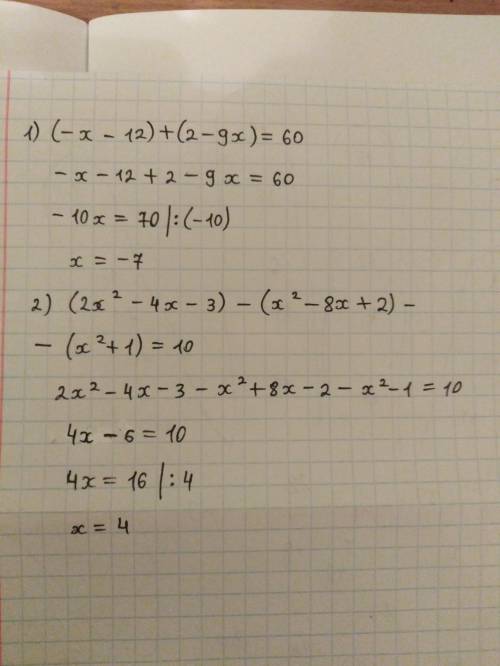 1) (-x - 12)+(2-9x)= 60
-x-12+2-9x = 60
-10x = 70 |:(-10)
x = -7
2) (2x² - 4x - 3) - (x² - 8x + 2) -
- (x²+1) = 10
2x² - 4x - 3 - x² + 8x - 2 - x² - 1 = 10
4x - 6 = 10
4x = 16 |: 4
x = 4